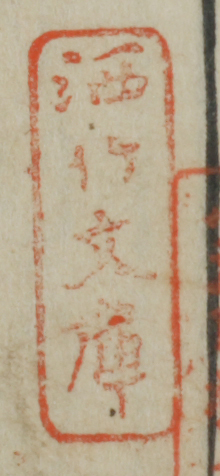 洒竹文庫